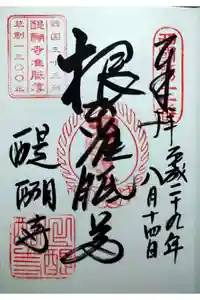 奉拝
平成二十九年
八月十四日
根本准胝尊
醍醐寺
西国三十三所
草創一三〇〇年